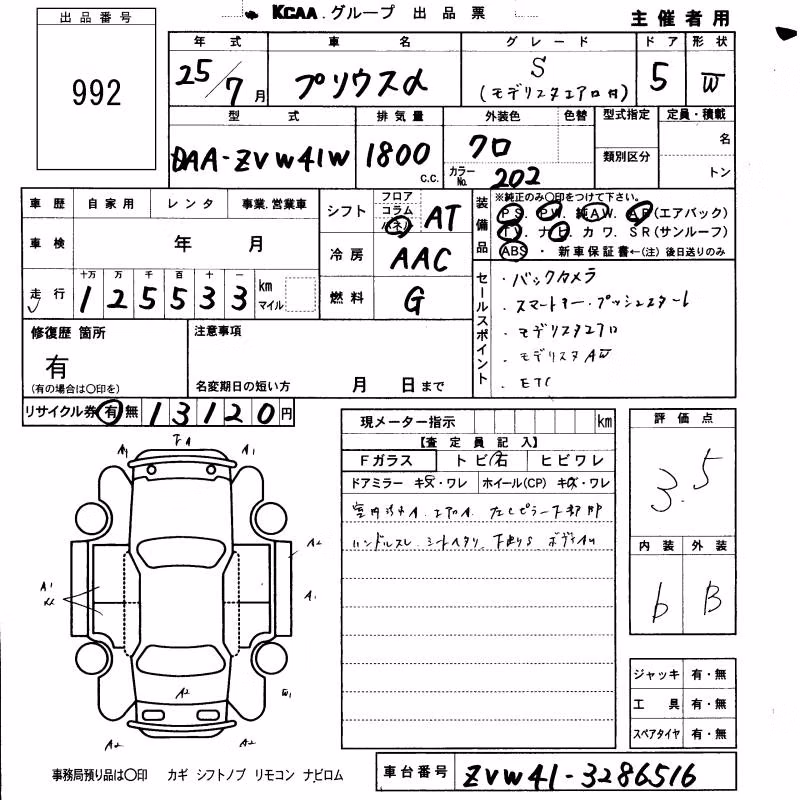 KCAA グループ 出品票
主催者用
出品番号
992
年式 車名 グレード ドア 形状
25/7月 プリウスα S 5 W
(モデリスタエアロ付)
型式 排気量 外装色 色替 型式指定 定員・積載
DAA-ZVW41W 1800 c.c. クロ 類別区分 名
カラーNo. 202 トン
車歴 自家用 レンタ 事業.営業車
車検 年 月
走行 十万 万 千 百 十 一
1 2 5 5 3 3 km マイル
シフト フロア コラム パネル AT
冷房 AAC
燃料 G
装備品 ※純正のみ○印をつけて下さい。
PS. PW. 純AW. AB(エアバック)
TV. ナビ. カワ. SR(サンルーフ)
ABS ・ 新車保証書←(注) 後日送りのみ
セールスポイント
・バックカメラ
・スマートキー・プッシュスタート
・モデリスタエアロ
・モデリスタAW
・ETC
修復歴 箇所
有
(有の場合は○印を)
注意事項
名変期日の短い方 月 日まで
リサイクル券 有 無 13120円
現メーター指示 km
【査定員記入】
Fガラス トビ石 ヒビワレ
ドアミラー キズ・ワレ ホイール(CP) キズ・ワレ
ハンドルスレ シートヘタリ 下廻りS
評価点
3.5
内装 外装
b B
A1 A1
A2
A1 A1
A2 W1
A2 A2
ジャッキ 有・無
工具 有・無
スペアタイヤ 有・無
事務局預り品は○印 カギ シフトノブ リモコン ナビロム
車台番号 ZVW41-3286516